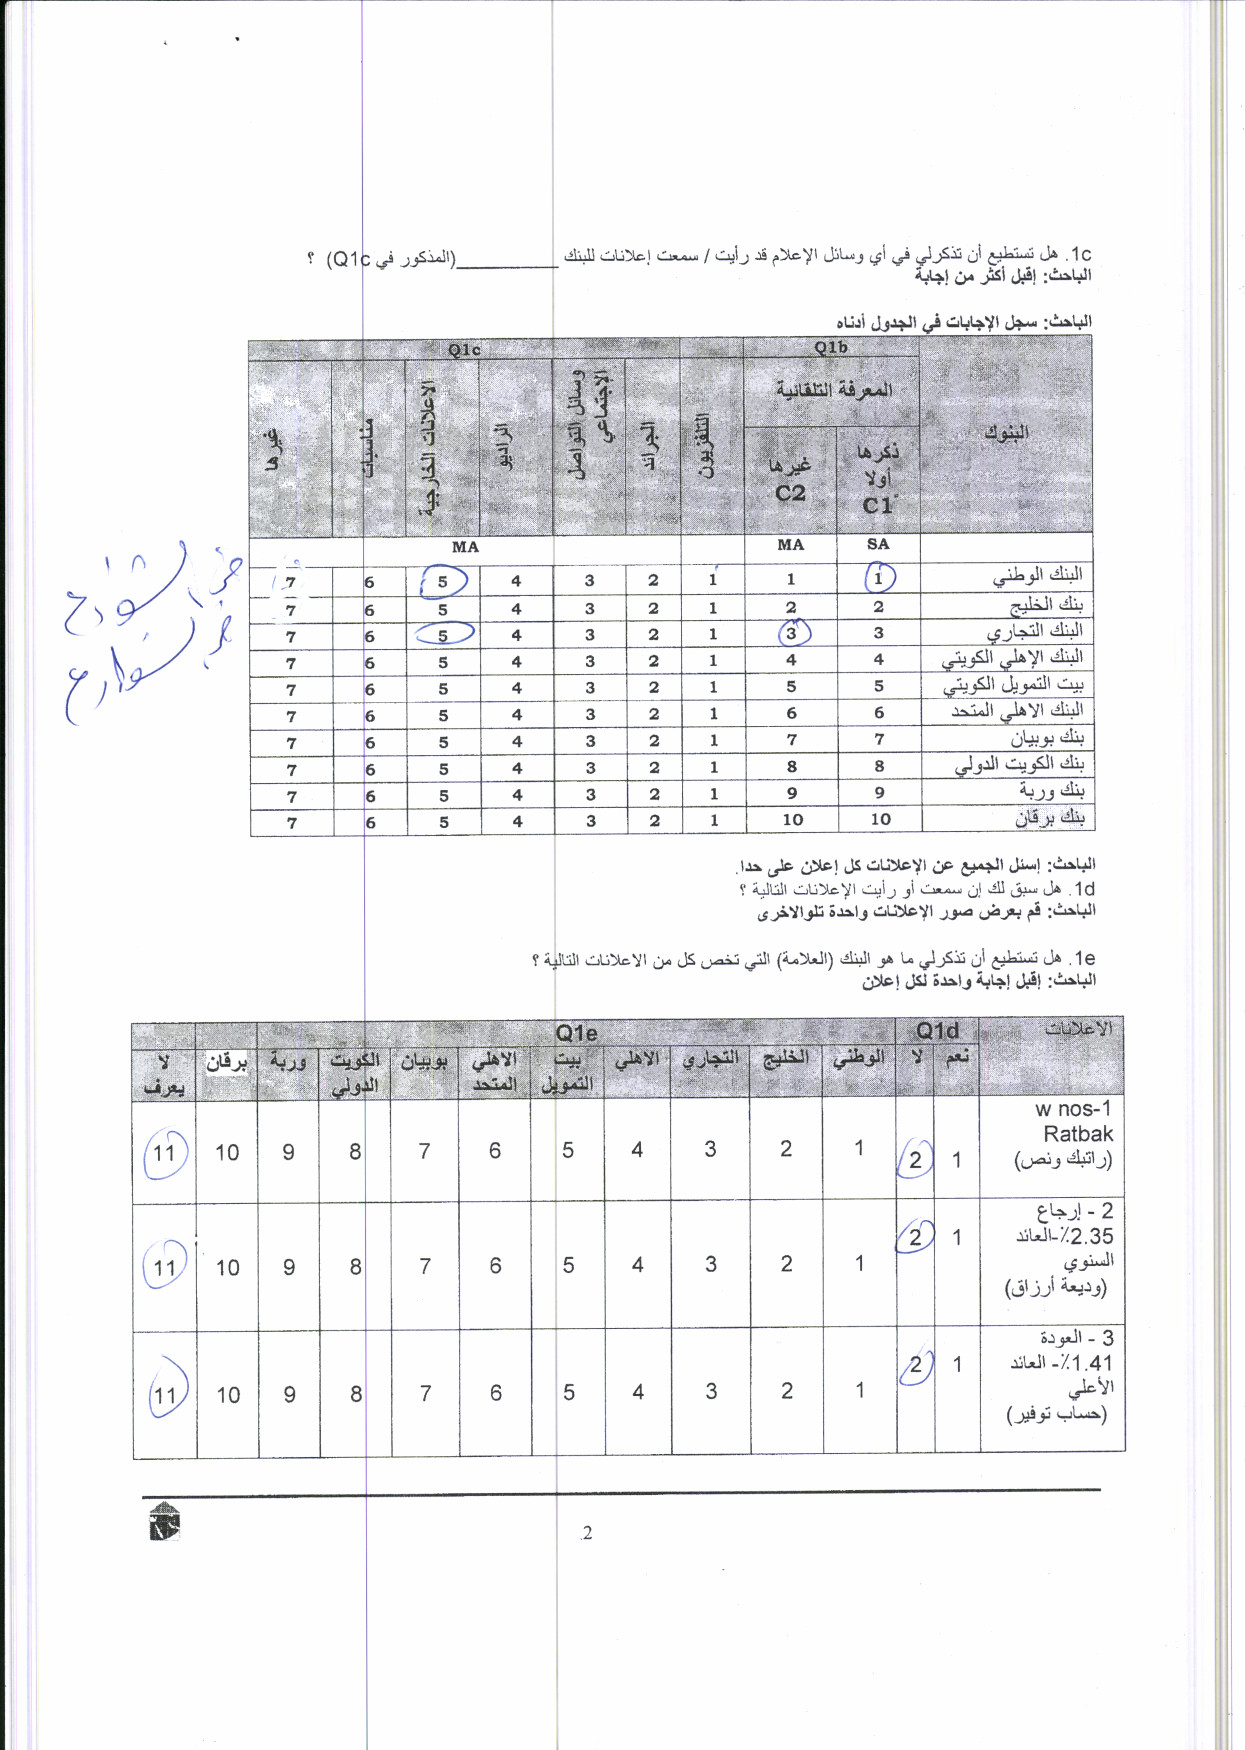 1c. هل تستطيع أن تذكرلي في أي وسائل الإعلام قد رأيت / سمعت إعلانات للبنك __________(المذكور في Q1c) ؟
الباحث: إقبل أكثر من إجابة
الباحث: سجل الإجابات في الجدول أدناه
البنوك Q1b Q1c
المعرفة التلقائية
ذكرها أولا C1 غيرها C2 التلفزيون الجرائد وسائل التواصل الإجتماعي الراديو الاعلانات الخارجية مناسبات غيرها
SA MA MA
البنك الوطني 1 1 1 2 3 4 5 6 7
بنك الخليج 2 2 1 2 3 4 5 6 7
البنك التجاري 3 3 1 2 3 4 5 6 7
البنك الإهلي الكويتي 4 4 1 2 3 4 5 6 7
بيت التمويل الكويتي 5 5 1 2 3 4 5 6 7
البنك الاهلي المتحد 6 6 1 2 3 4 5 6 7
بنك بوبيان 7 7 1 2 3 4 5 6 7
بنك الكويت الدولي 8 8 1 2 3 4 5 6 7
بنك وربة 9 9 1 2 3 4 5 6 7
بنك برقان 10 10 1 2 3 4 5 6 7
الشوارع
الباحث: إسئل الجميع عن الإعلانات كل إعلان على حدا.
1d. هل سبق لك إن سمعت أو رأيت الإعلانات التالية ؟
الباحث: قم بعرض صور الإعلانات واحدة تلوالاخرى
1e. هل تستطيع أن تذكرلي ما هو البنك (العلامة) التي تخص كل من الاعلانات التالية ؟
الباحث: إقبل إجابة واحدة لكل إعلان
الاعلانات Q1d Q1e
نعم لا الوطني الخليج التجاري الاهلي بيت التمويل الاهلي المتحد بوبيان الكويت الدولي وربة برقان لا يعرف
w nos-1
Ratbak
(راتبك ونص) 1 2 1 2 3 4 5 6 7 8 9 10 11
2 - إرجاع
2.35٪-العائد
السنوي
(وديعة أرزاق) 1 2 1 2 3 4 5 6 7 8 9 10 11
3 - العودة
1.41٪- العائد
الأعلي
(حساب توفير) 1 2 1 2 3 4 5 6 7 8 9 10 11
2